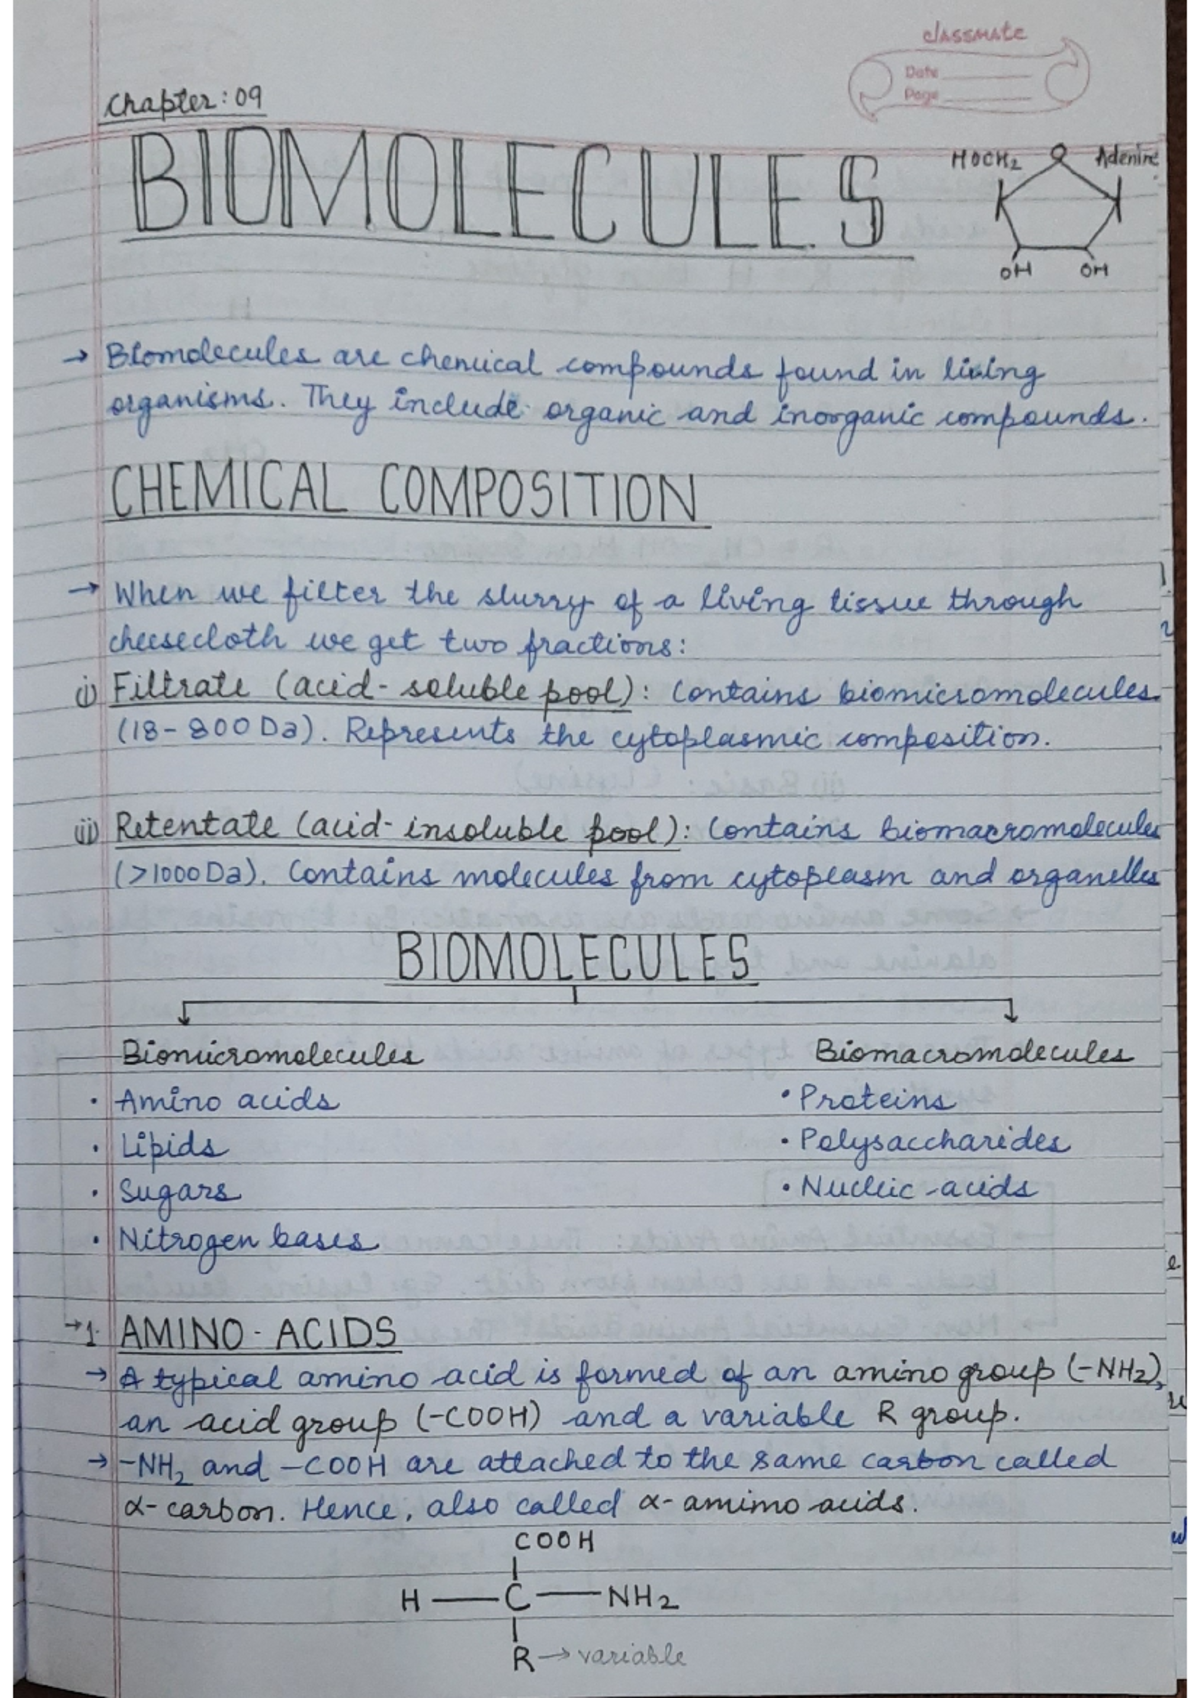 classmate
Date
Page
Chapter: 09
BIOMOLECULES
HOCH2 O Adenine
OH OH
→ Biomolecules are chemical compounds found in living
organisms. They include organic and inorganic compounds.
CHEMICAL COMPOSITION
→ When we filter the slurry of a living tissue through
cheesecloth we get two fractions:
i) Filtrate (acid-soluble pool): Contains biomicromolecules
(18-800 Da). Represents the cytoplasmic composition.
ii) Retentate (acid-insoluble pool): Contains biomacromolecules
(>1000 Da). Contains molecules from cytoplasm and organelles
BIOMOLECULES
Biomicromolecules Biomacromolecules
• Amino acids • Proteins
• Lipids • Polysaccharides
• Sugars • Nucleic acids
• Nitrogen bases
→ 1. AMINO-ACIDS
→ A typical amino acid is formed of an amino group (-NH2),
an acid group (-COOH) and a variable R group.
→ -NH2 and -COOH are attached to the same carbon called
α-carbon. Hence, also called α-amino acids.
COOH
H — C — NH2
R → variable